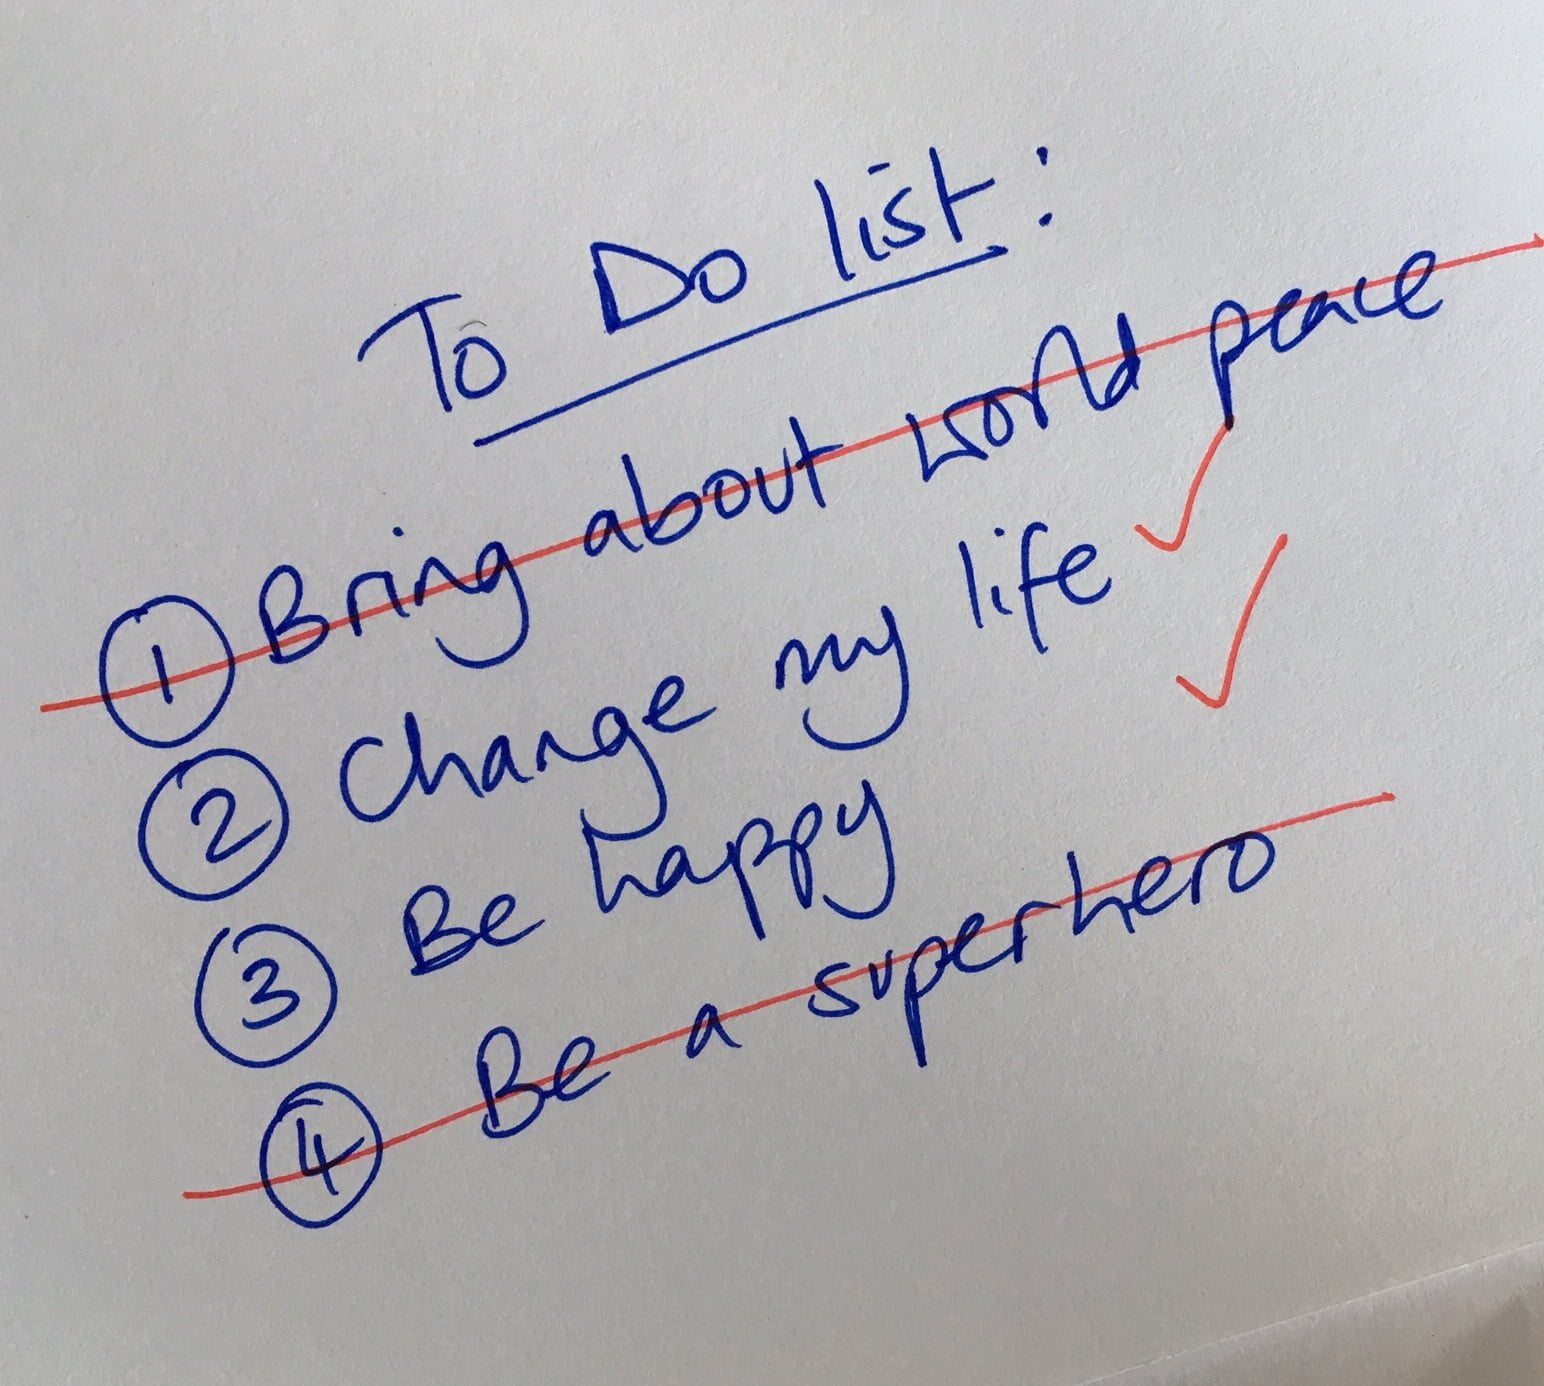 To Do list:
① Bring about world peace
② Change my life ✓
③ Be happy ✓
④ Be a superhero